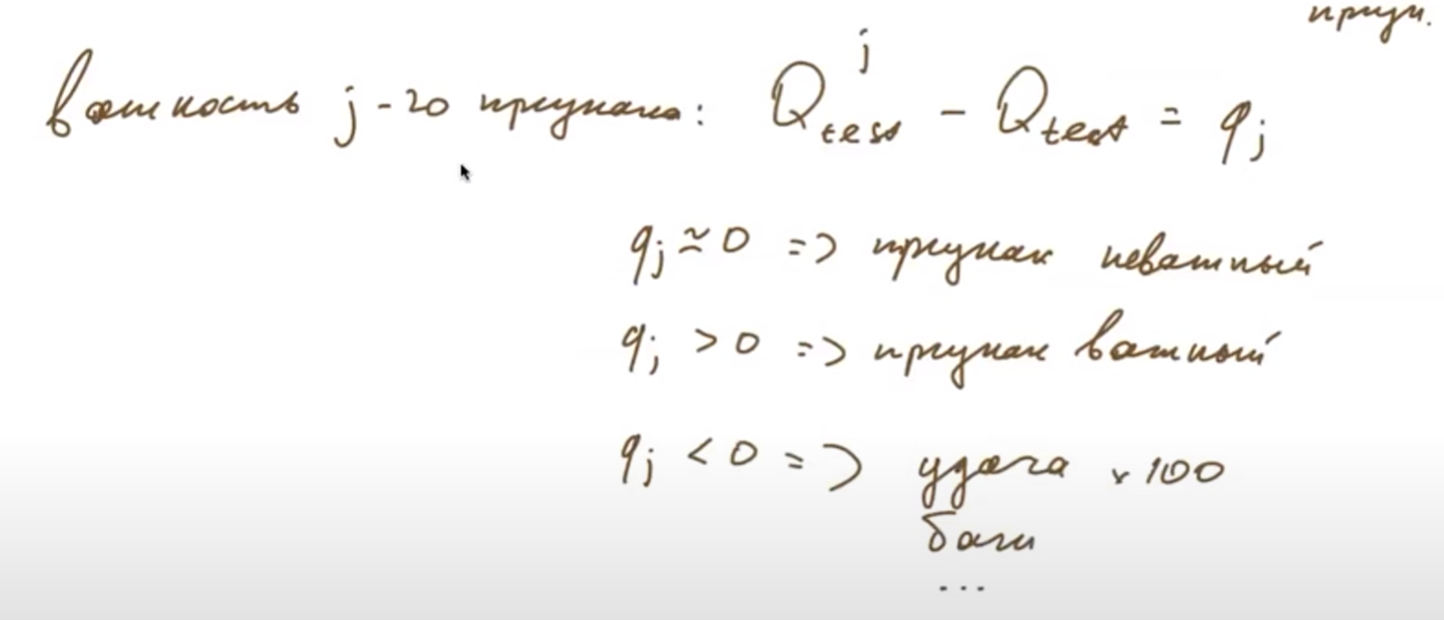 призн.
важность j-го признака: Q^j_test - Q_test = q_j
q_j ≃ 0 => признак неважный
q_j > 0 => признак важный
q_j < 0 => удача x 100
баги
...